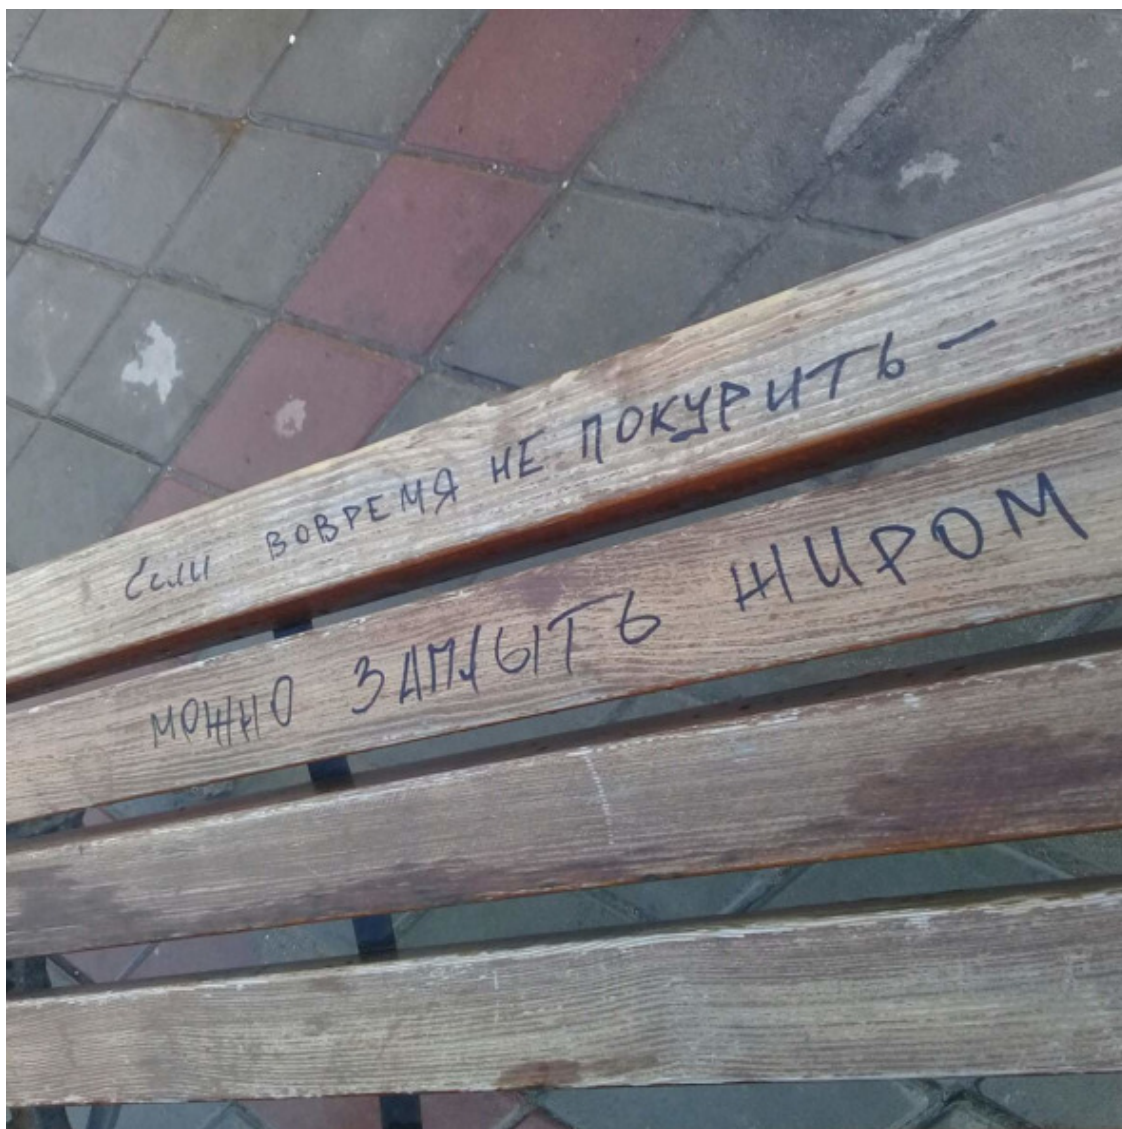 Если ВОВРЕМЯ НЕ ПОКУРИТЬ –
МОЖНО ЗАПЛЫТЬ ЖИРОМ